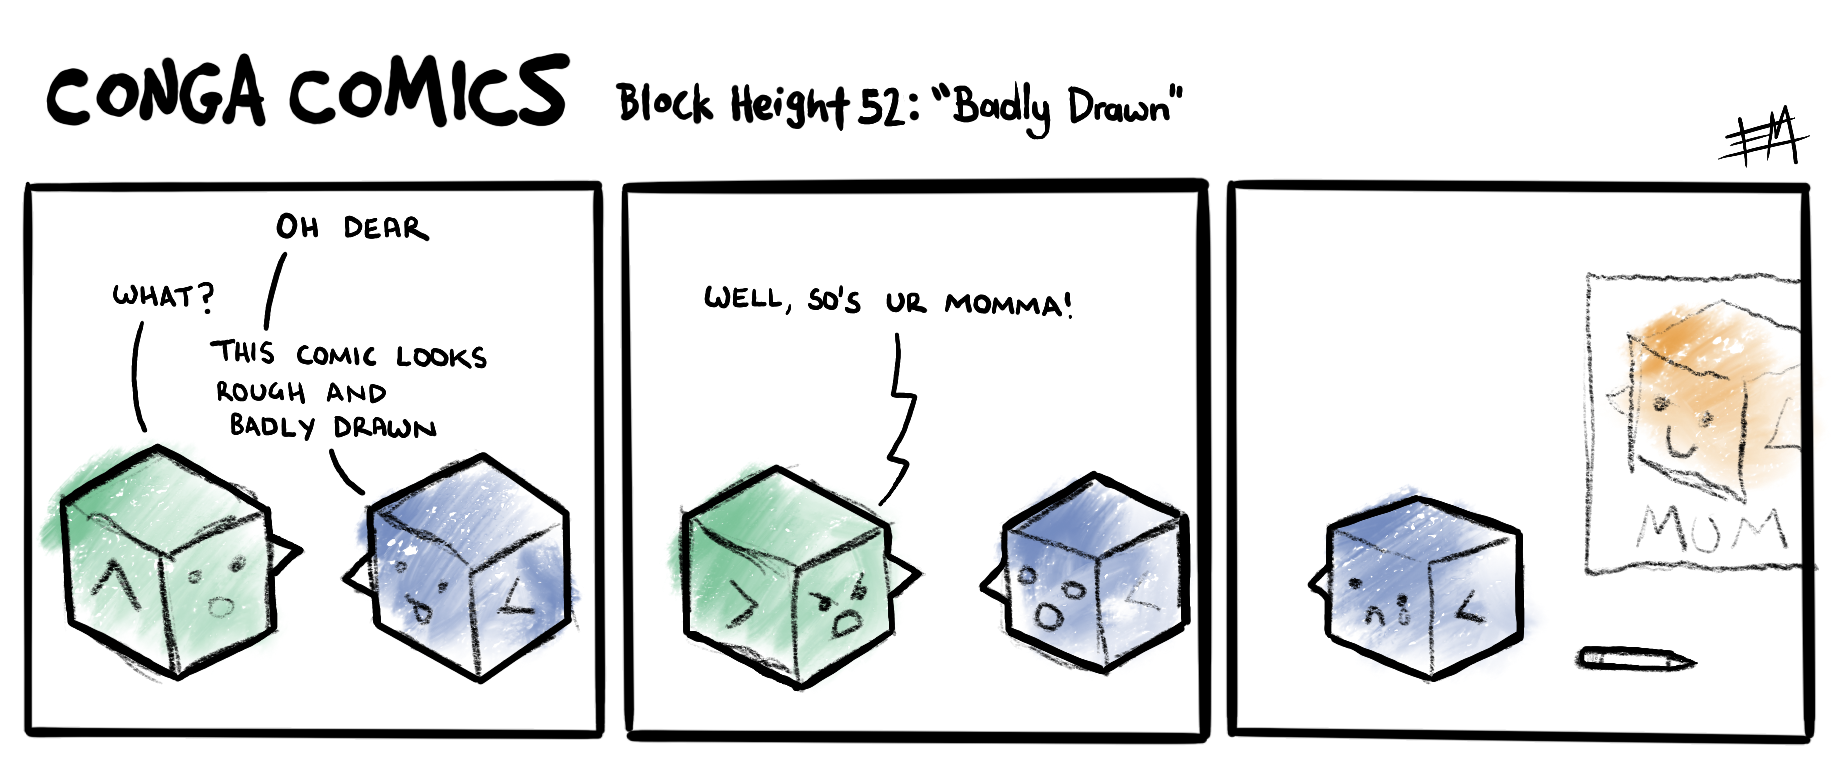 CONGA COMICS Block Height 52: "Badly Drawn"
EM
OH DEAR
WHAT?
THIS COMIC LOOKS
ROUGH AND
BADLY DRAWN
WELL, SO'S UR MOMMA!
MOM